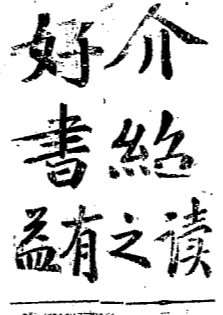 介紹
好書
读之有益